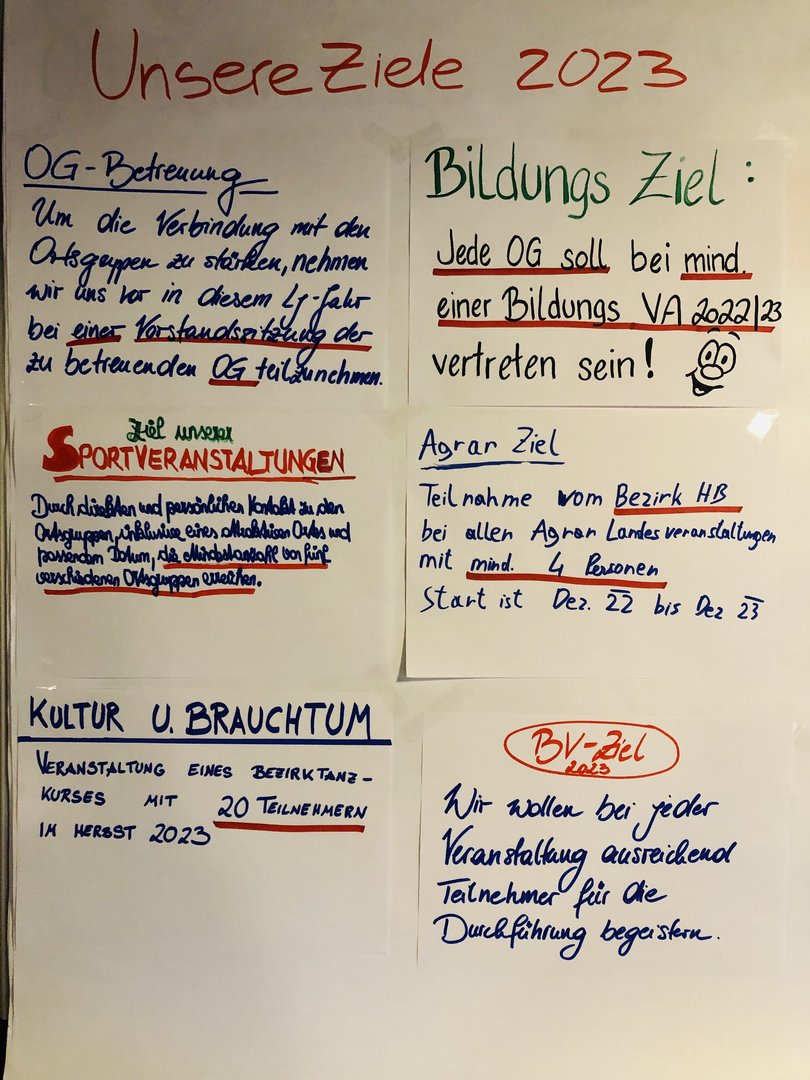 Unsere Ziele 2023
OG-Betreuung
Um die Verbindung mit den
Ortsgruppen zu stärken, nehmen
wir uns vor in diesem Lj-Jahr
bei einer Vorstandssitzung der
zu betreuenden OG teilzunehmen.
Bildungs Ziel:
Jede OG soll bei mind.
einer Bildungs VA 2022/23
vertreten sein!
Ziel unserer
SPORTVERANSTALTUNGEN
Durch direkten und persönlichen Kontakt zu den
Ortsgruppen, inklusive eines attraktiven Ortes und
passendem Datum, die Mindestanzahl von fünf
verschiedenen Ortsgruppen erreichen.
Agrar Ziel
Teilnahme vom Bezirk HB
bei allen Agrar Landesveranstaltungen
mit mind. 4 Personen
Start ist Dez. 22 bis Dez 23
KULTUR U. BRAUCHTUM
VERANSTALTUNG EINES BEZIRKTANZ-
KURSES MIT 20 TEILNEHMERN
IM HERBST 2023
BV-Ziel
2023
Wir wollen bei jeder
Veranstaltung ausreichend
Teilnehmer für die
Durchführung begeistern.